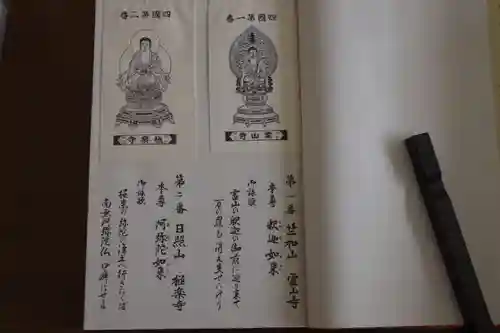 四國第一番
霊山寺
第一番 竺和山 霊山寺
本尊 釈迦如来
御詠歌
霊山の釈迦の御前に巡り来て
四國第二番
極楽寺
第二番 日照山 極楽寺
本尊 阿弥陀如来
御詠歌
極楽の弥陀の浄土へ行きたくば
南無阿弥陀仏口癖にせよ